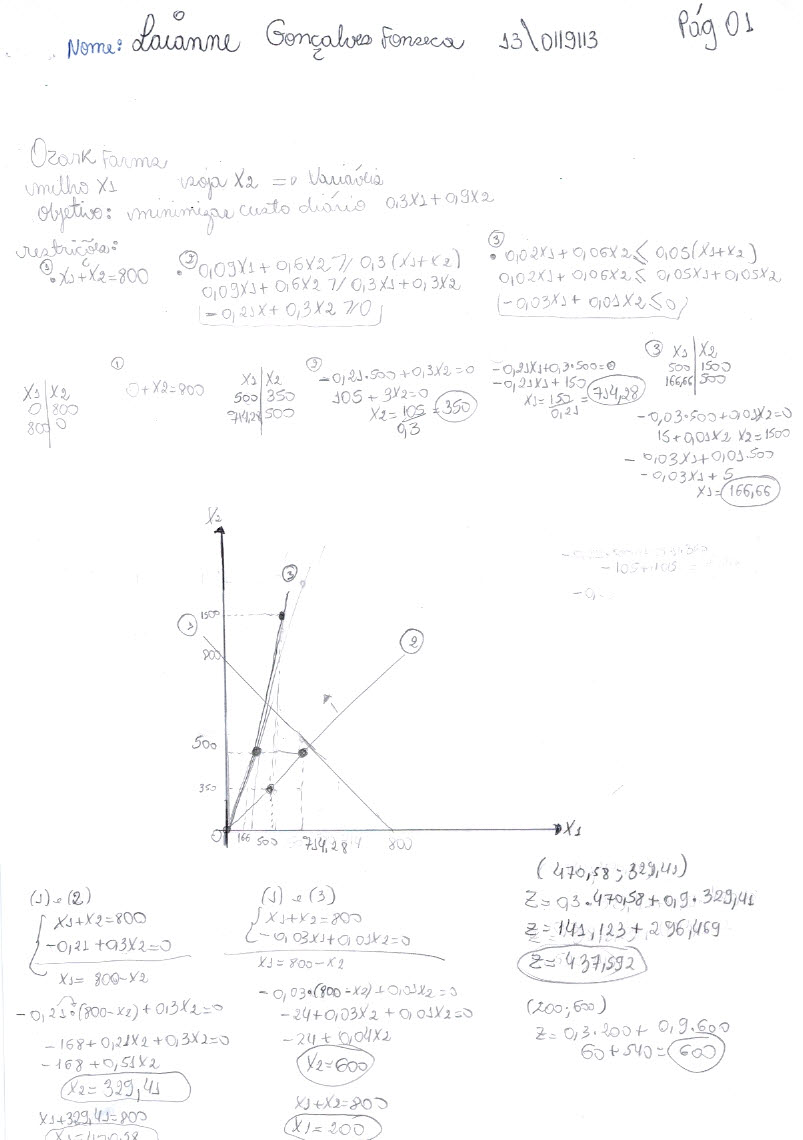 Pág 01
Nome: Laianne Gonçalves Fonseca 13\0119113
Ozark Farma
milho X1 soja X2 => Variáveis
objetivo: minimizar custo diário 0,3X1+0,9X2
restrições:
① • X1+X2=800
② • 0,09X1+0,6X2 ⩾ 0,3(X1+X2)
0,09X1+0,6X2 ⩾ 0,3X1+0,3X2
-0,21X+0,3X2 ⩾0
③ • 0,02X1+0,06X2 ⩽ 0,05(X1+X2)
0,02X1+0,06X2 ⩽ 0,05X1+0,05X2
-0,03X1+0,01X2 ⩽0
①
X1 | X2
0 | 800
800 | 0
0+X2=800
②
X1 | X2
500 | 350
714,28 | 500
-0,21.500+0,3X2=0
105+3X2=0
X2=105/0,3=350
-0,21X1+0,3.500=0
-0,21X1+150
X1=150/0,21=714,28
③
X1 | X2
500 | 1500
166,66 | 500
-0,03.500+0,01X2=0
15+0,01X2 X2=1500
-0,03X1+0,01.500
-0,03X1+5
X1=166,66
-105+105
-0,
X2
③
1500
①
800
②
500
350
0 166 500 714,28 800 X1
(1) e (2)
X1+X2=800
-0,21+0,3X2=0
X1=800-X2
-0,21.(800-X2)+0,3X2=0
-168+0,21X2+0,3X2=0
-168+0,51X2
X2=329,41
X1+329,41=800
X1=470,58
(1) e (3)
X1+X2=800
-0,03X1+0,01X2=0
X1=800-X2
-0,03.(800-X2)+0,01X2=0
-24+0,03X2+0,01X2=0
-24+0,04X2
X2=600
X1+X2=800
X1=200
(470,58;329,41)
Z=0,3.470,58+0,9.329,41
Z=141,123+296,469
Z=437,592
(200;600)
Z=0,3.200+0,9.600
60+540=600